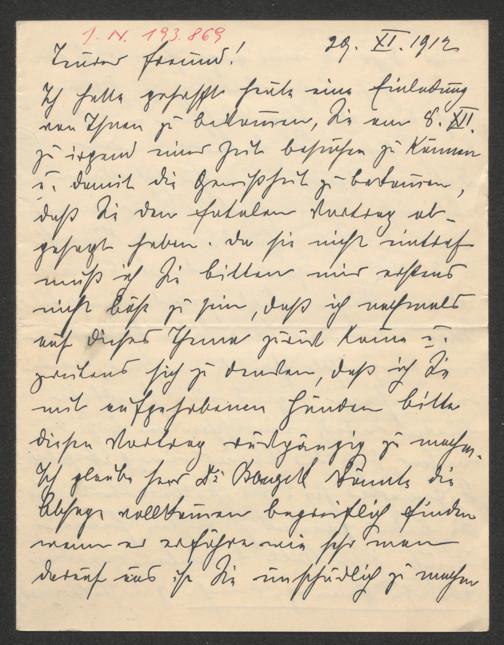 I. N. 193.869
29. XI. 1912
Teurer Freund!
Ich hatte gehofft heute eine Einladung
von Ihnen zu bekommen, Sie am 8. XII.
zu irgend einer Zeit besuchen zu können
u. damit die Gewißheit zu bekommen,
daß Sie den fatalen Vortrag ab-
gesagt haben. Da sie nicht eintraf
muß ich Sie bitten mir erstens
nicht böse zu sein, daß ich nochmals
auf dieses Thema zurück komme u.
zweitens sich zu denken, daß ich Sie
mit aufgehobenen Händen bitte
diesen Vortrag rückgängig zu machen.
Ich glaube Herr Dr könnte die
Absage vollkommen begreiflich finden
wenn er erführe wie sehr man
darauf aus ist Sie unschädlich zu machen